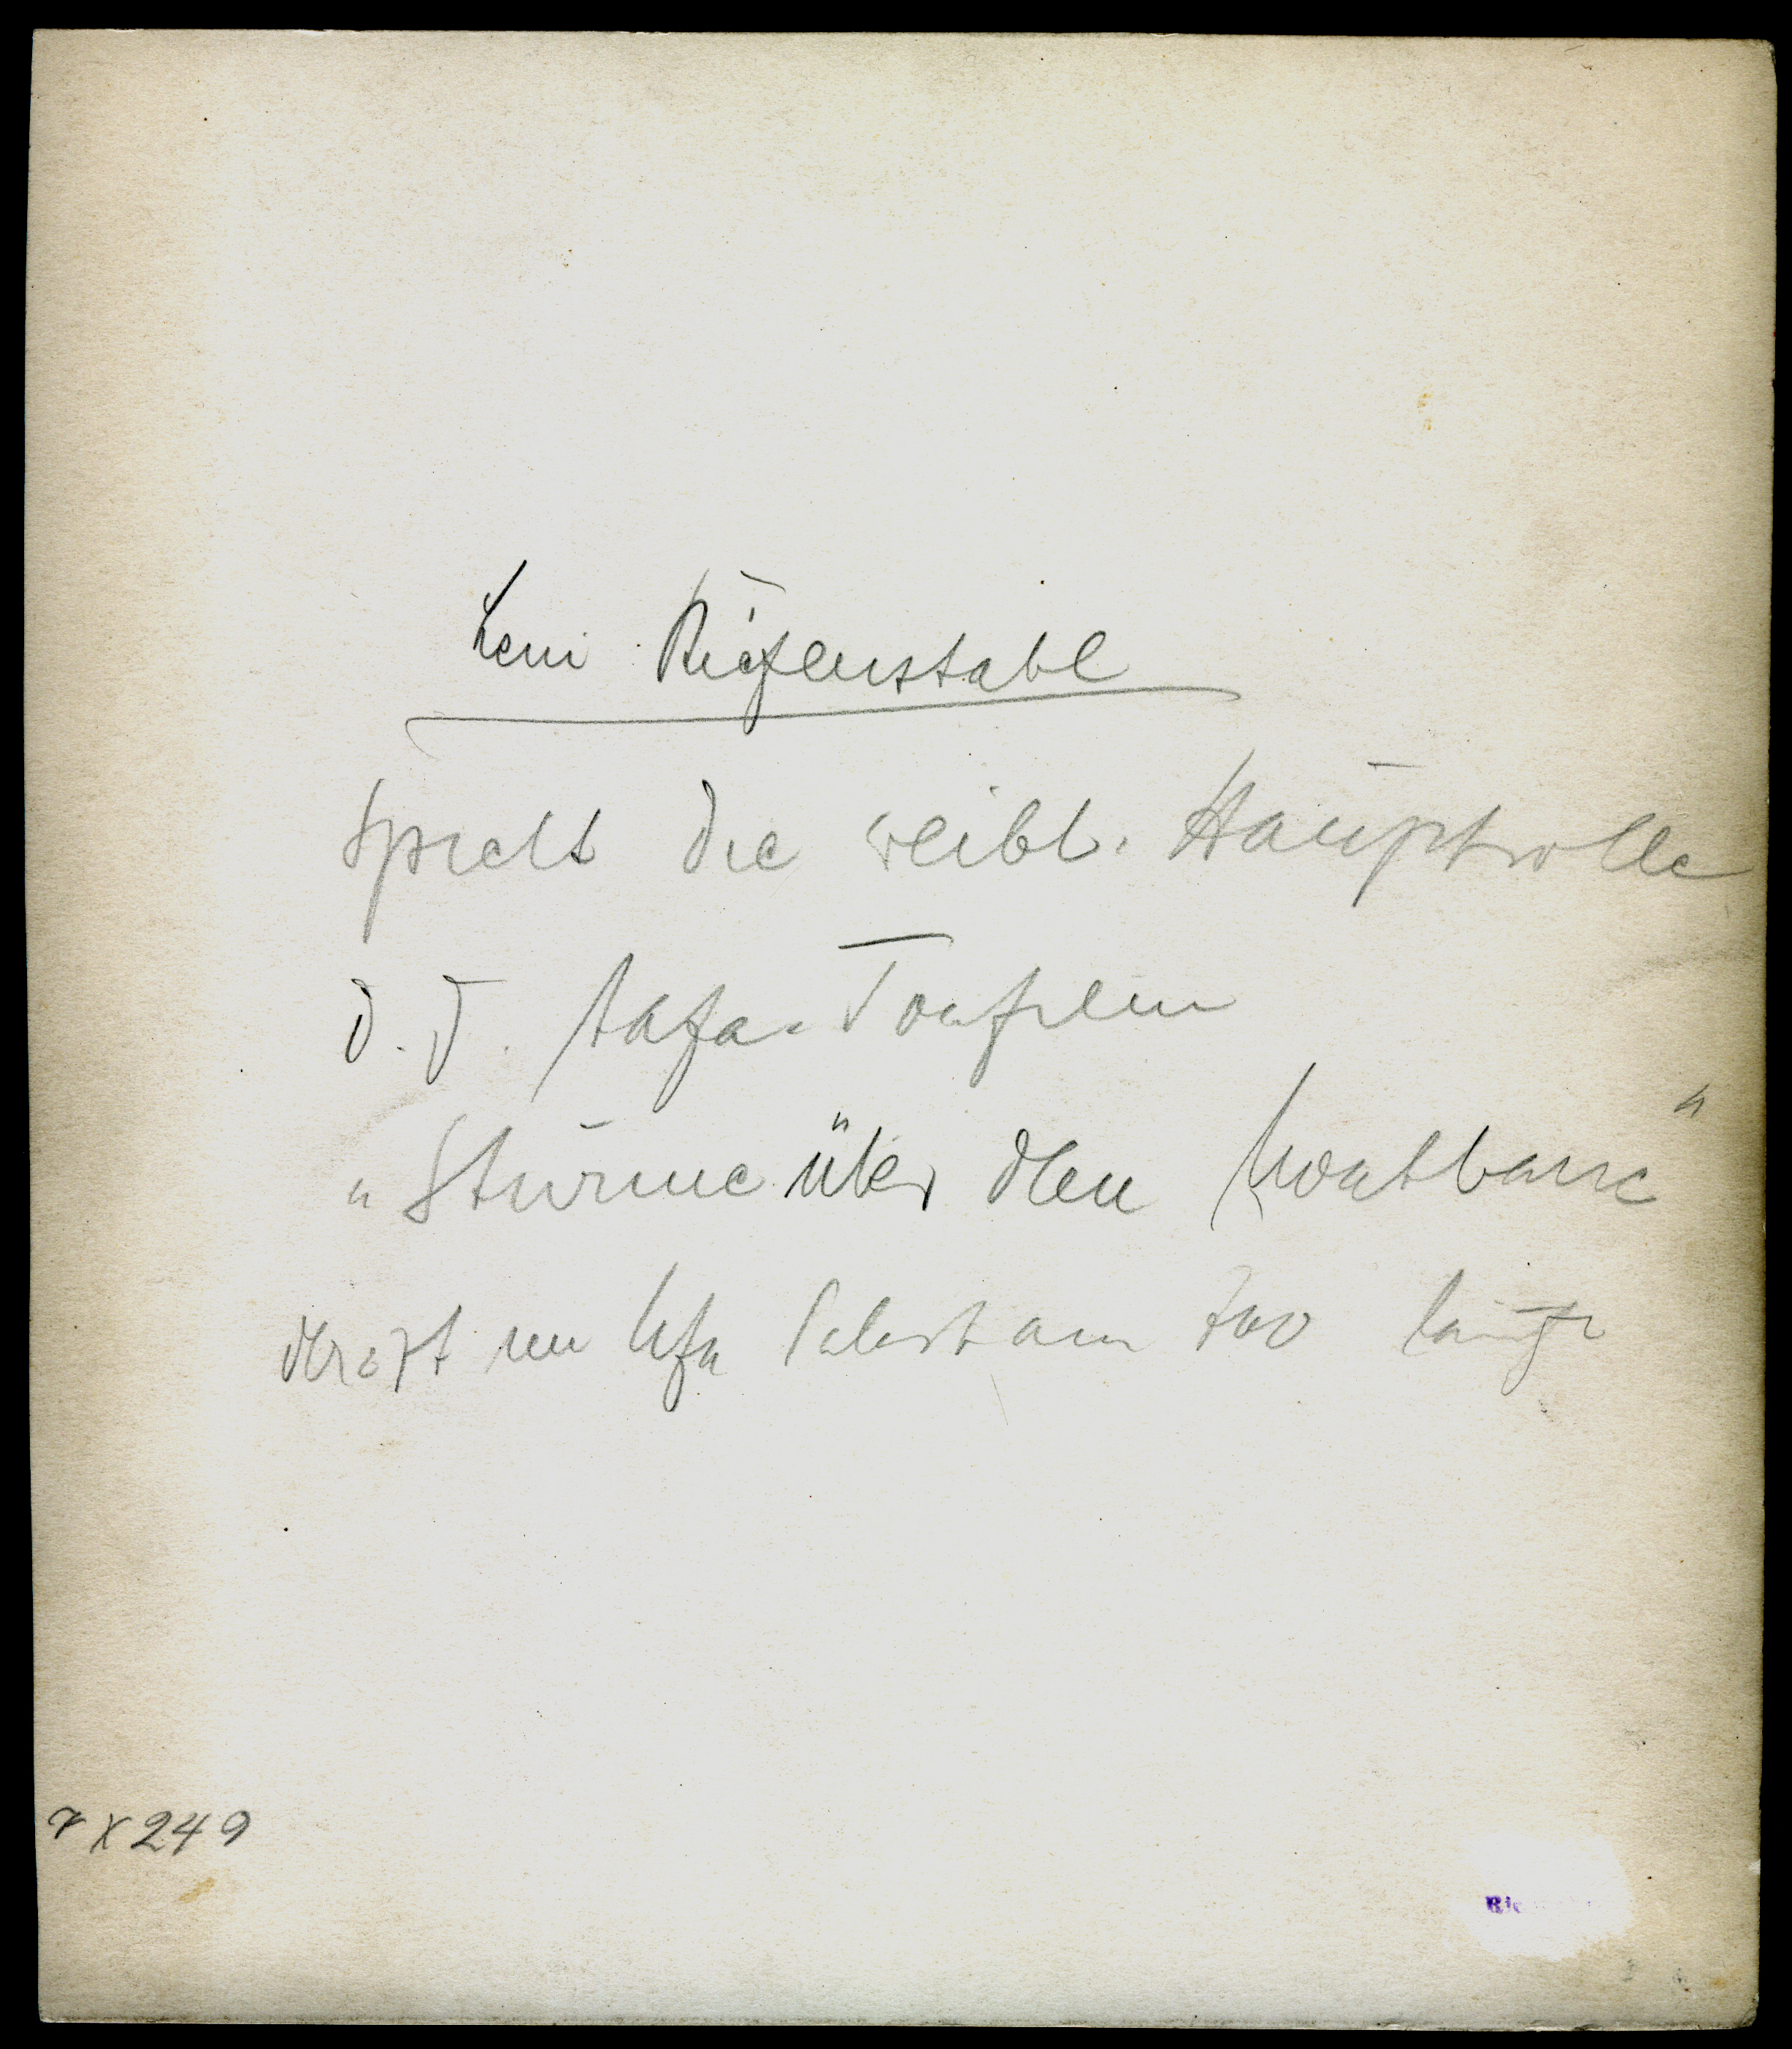 Leni Riefenstahl
spielt die weibl. Hauptrolle
i. d. Aafa-Tonfilm
"Stürme über dem Montblanc"
der z Zt im Ufa Palast am Zoo läuft
r X 249